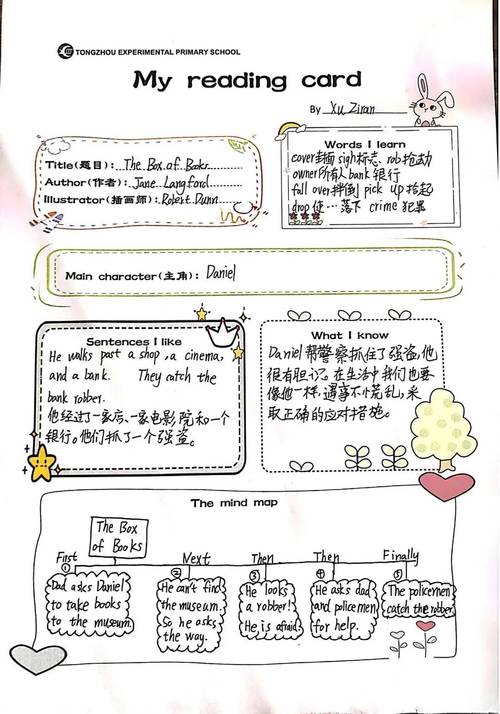 TONGZHOU EXPERIMENTAL PRIMARY SCHOOL
My reading card
By Xu Ziran
Title(题目): The Box of Books
Author(作者): Jane Langford
Illustrator(插画师): Robert Dunn
Words I learn
cover封面 sigh标志 rob抢劫
owner所有人 bank 银行
fall over 摔倒 pick up 拾起
drop 使…落下 crime 犯罪
Main character(主角): Daniel
Sentences I like
He walks past a shop, a cinema,
and a bank. They catch the
bank robber.
他经过了一家店、一家电影院和一个
银行。他们抓了一个强盗。
What I know
Daniel 帮警察抓住了强盗,他
很有胆识。在生活中我们也要
像他一样,遇事不慌乱,采
取正确的应对措施。
The mind map
The Box
of Books
First Next Then Then Finally
① Dad asks Daniel
to take books
to the museum.
② He can't find
the museum.
So he asks
the way.
③ He looks
a robber!
He is afraid.
④ He asks dad
and policemen
for help.
⑤ The policemen
catch the robber.